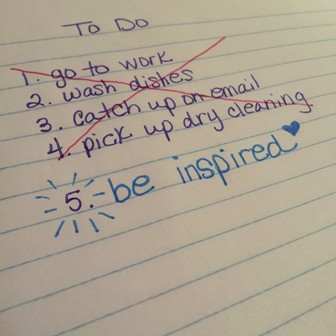 To Do
1. go to work
2. wash dishes
3. catch up on email
4. pick up dry cleaning
5. be inspired